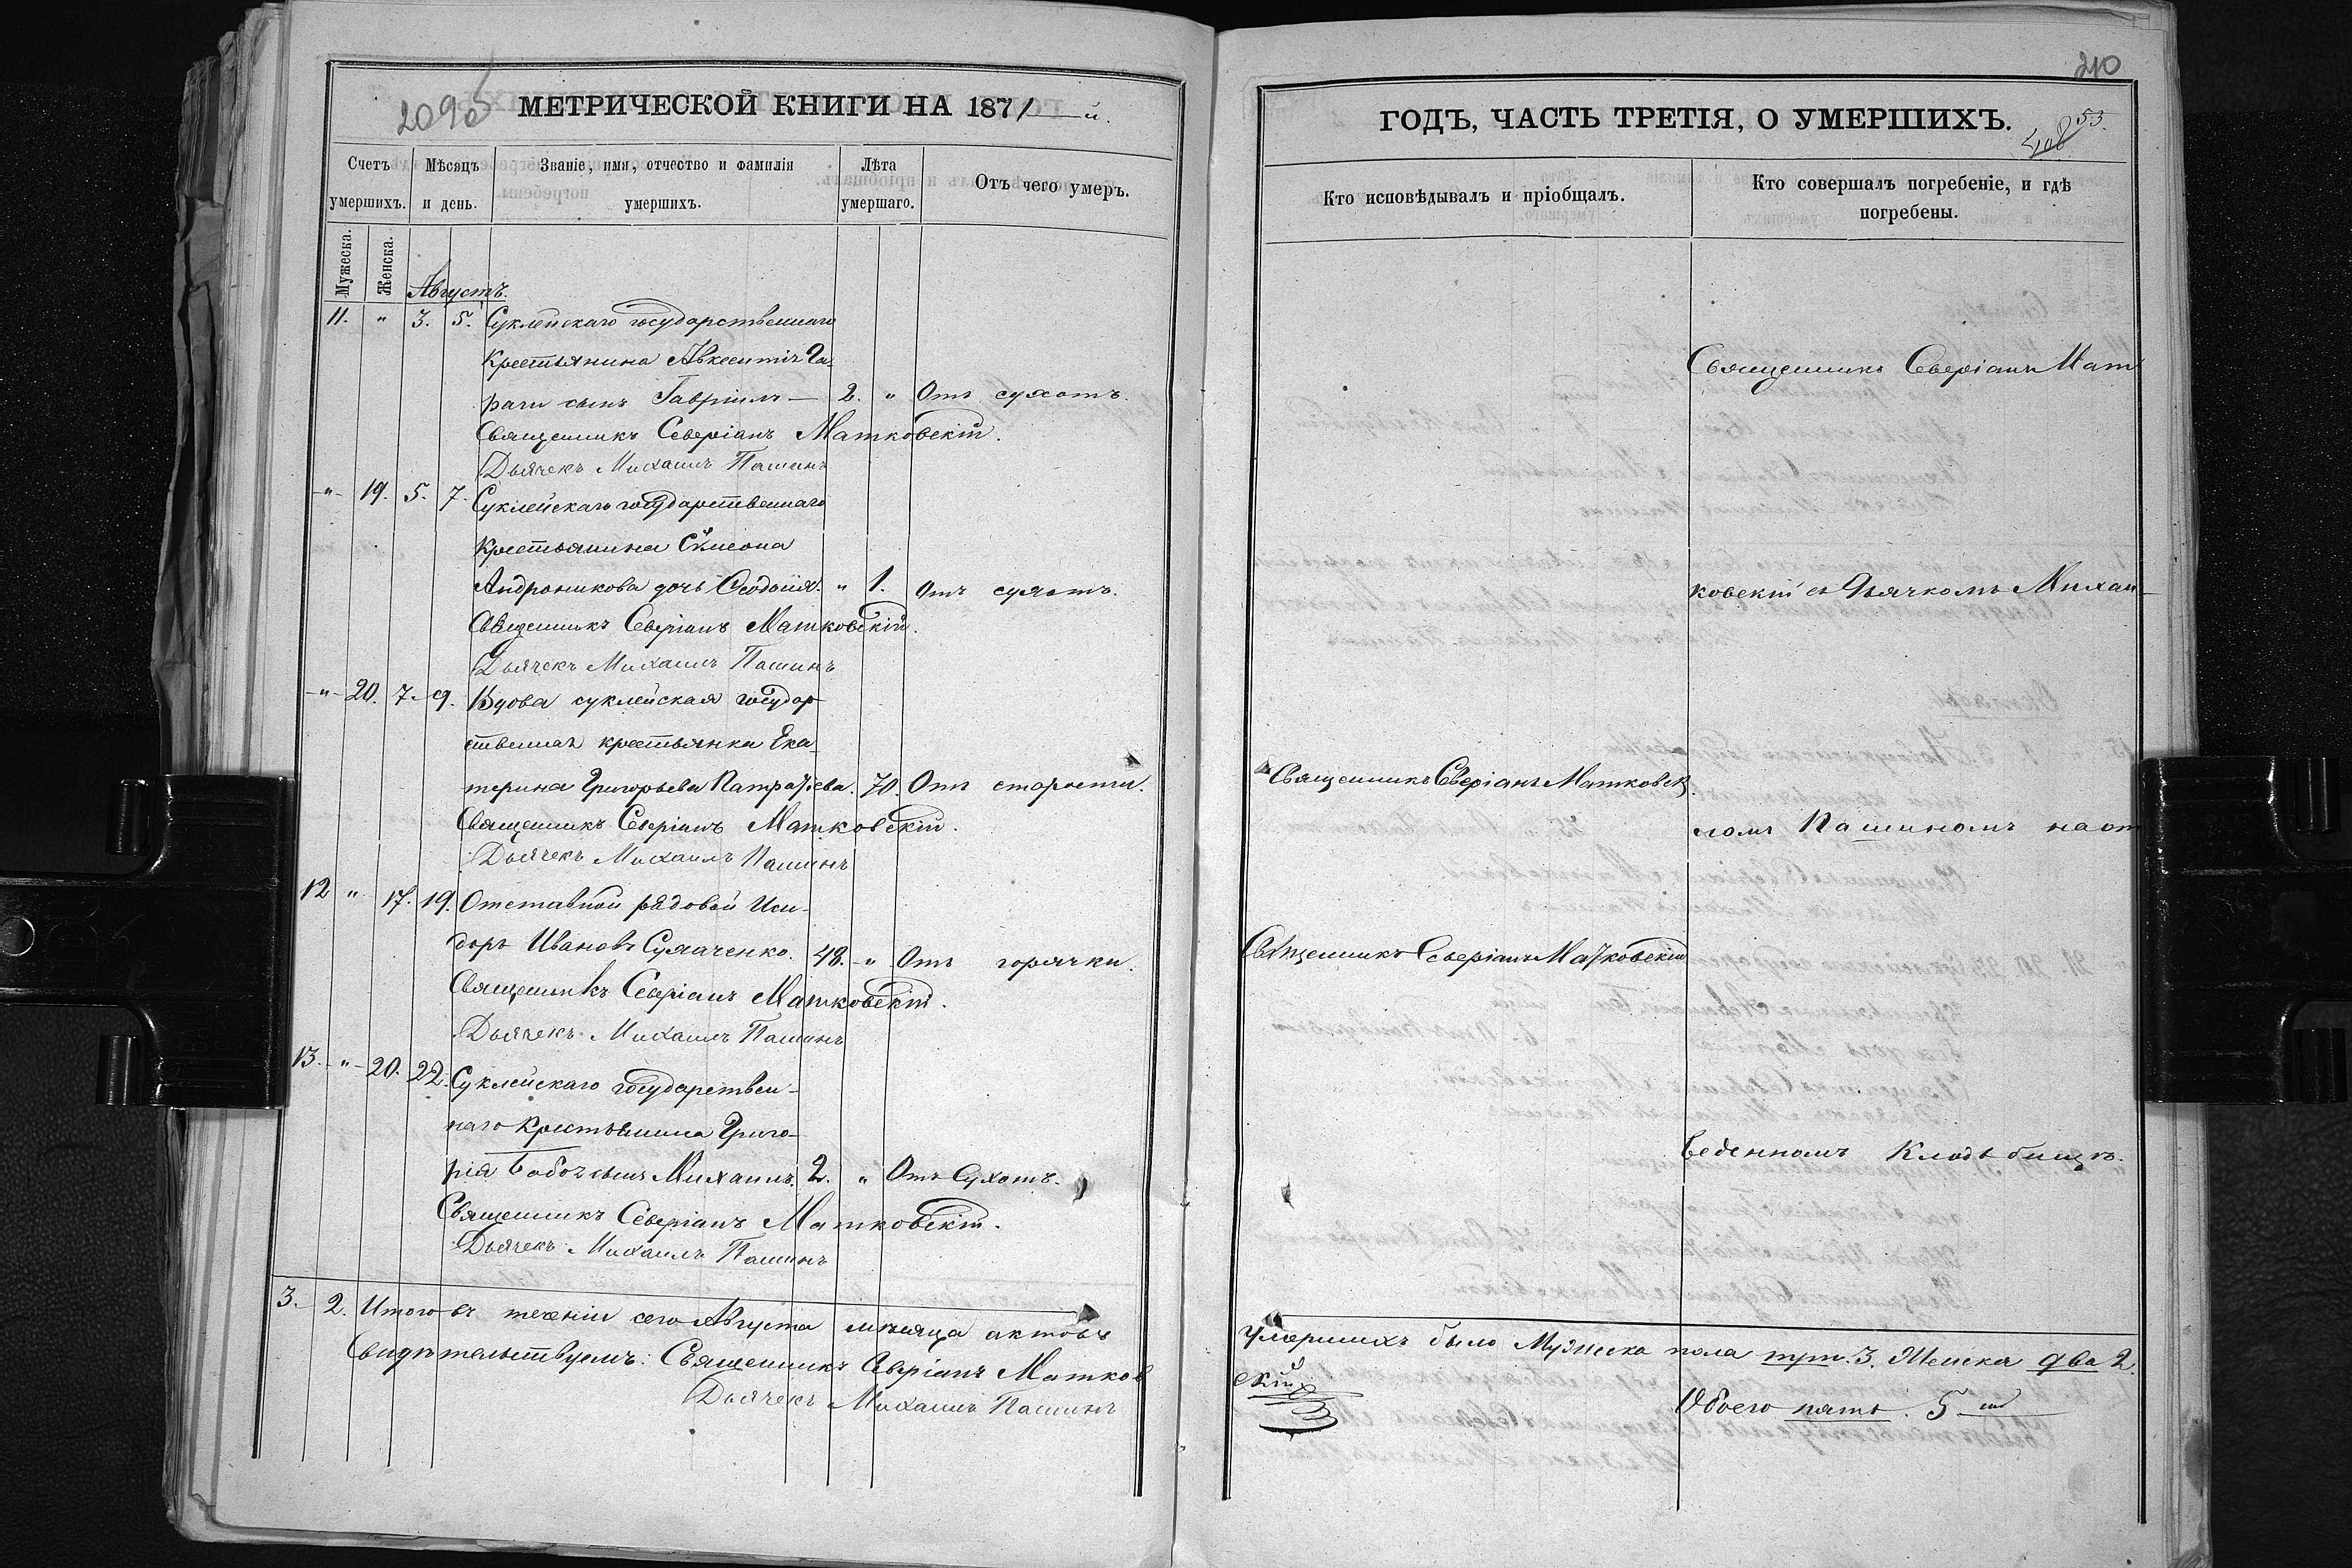 209об
МЕТРИЧЕСКОЙ КНИГИ НА 1871 й.
Счетъ умершихъ.
Мѣсяцъ и день.
Званіе, имя, отчество и фамилія умершихъ.
Лѣта умершаго.
Отъ чего умеръ.
Мужеска.
Женска.
Августъ.
11. " 3. 5. Суклейскаго государственнаго
крестьянина Авксентія Га-
рачи сынъ Гавріилъ — 2. " Отъ сухотъ.
Священникъ Северіанъ Матковскій.
Дьячекъ Михаилъ Пашинъ
-"- 19. 5. 7. Суклейскаго государственнаго
крестьянина Сѵмеона
Андроникова дочь Ѳеодосія. " 1. Отъ сухотъ.
Священникъ Северіанъ Матковскій.
Дьячекъ Михаилъ Пашинъ
-"- 20. 7. 9. Вдова суклейская государ-
ственная крестьянка Ека-
терина Григорьева Патрафіева. 70. Отъ старости.
Священникъ Северіанъ Матковскій.
Дьячекъ Михаилъ Пашинъ
12 " 17. 19. Отставной рядовой Иси-
доръ Ивановъ Сумаченко. 48. -" Отъ горячки.
Священникъ Северіанъ Матковскій.
Дьячекъ Михаилъ Пашинъ
13. -"- 20. 22. Суклейскаго государствен-
наго крестьянина Григо-
рія Бабоч сынъ Михаилъ. 2. " Отъ Сухотъ.
Священникъ Северіанъ Матковскій.
Дьячекъ Михаилъ Пашинъ
3. 2. Итого въ теченіи сего Августа мѣсяца актовъ
Свидѣтельствуемъ: Священникъ Северіанъ Матков
Дьячекъ Михаилъ Пашинъ
210
53.
ГОДЪ, ЧАСТЬ ТРЕТІЯ, О УМЕРШИХЪ.
Кто исповѣдывалъ и пріобщалъ.
Кто совершалъ погребеніе, и гдѣ погребены.
Священникъ Северіанъ Мат
ковскій съ Дьячкомъ Михаи-
Священникъ Северіанъ Матковск.
ломъ Пашиномъ на от
Священникъ Северіанъ Матковскій
веденномъ Кладбищѣ.
умершихъ было Мужеска пола три. 3. Женска два 2.
скій
Обоего пять. 5